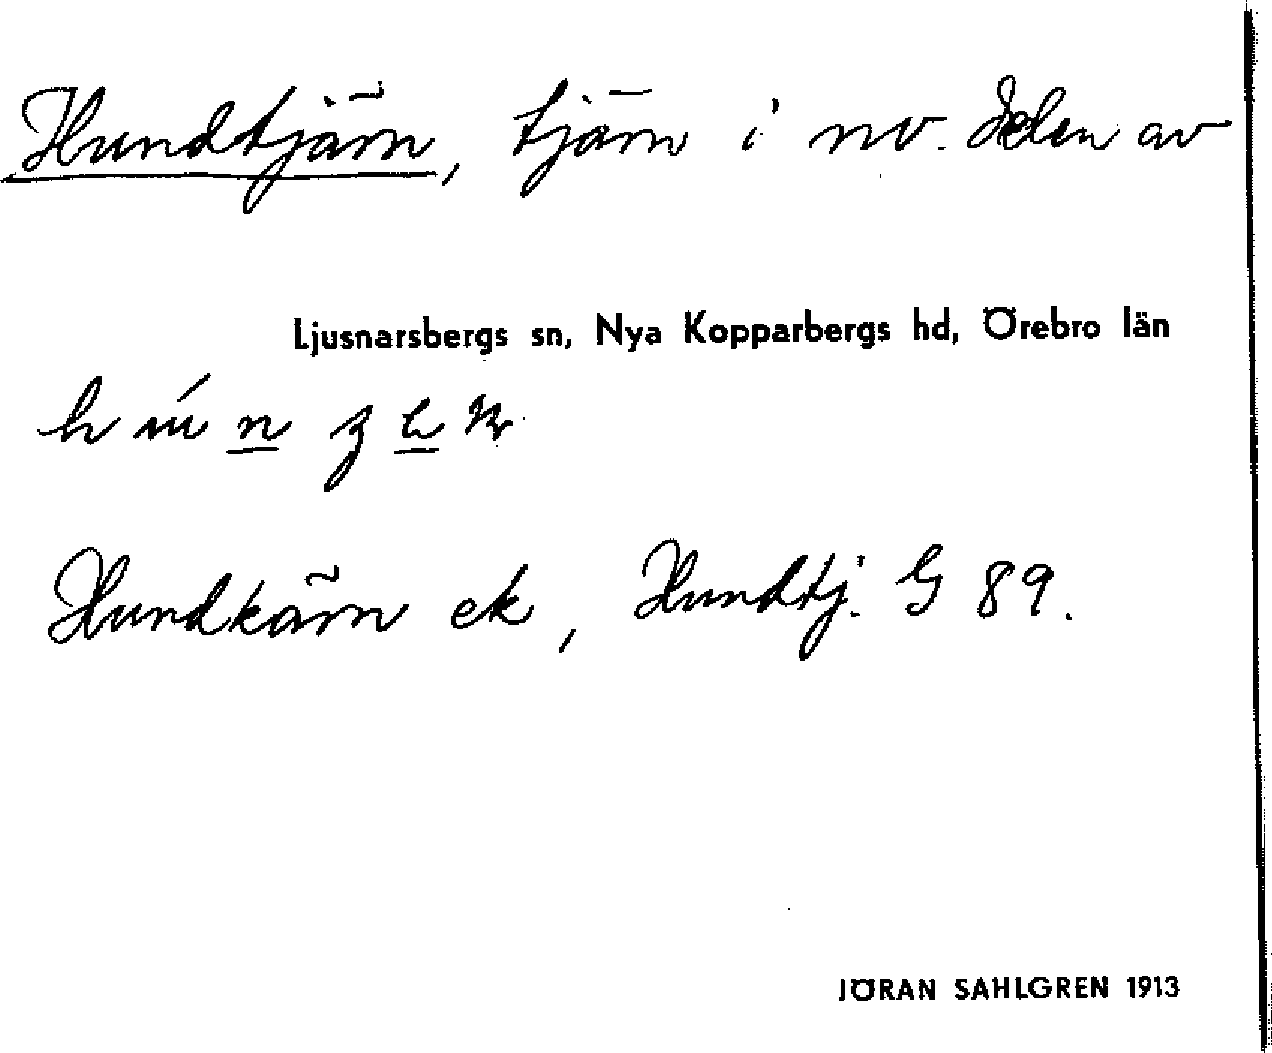 Hundtjärn, tjärn i nv. delen av
Ljusnarsbergs sn, Nya Kopparbergs hd, Örebro län
Hundkärn ek, Hundtj. G 89.
JÖRAN SAHLGREN 1913